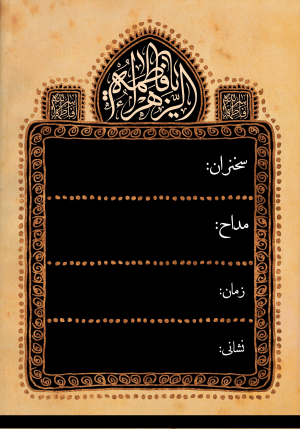 یا فاطمة الزهراء
سخنران:
مداح:
زمان:
نشانی: